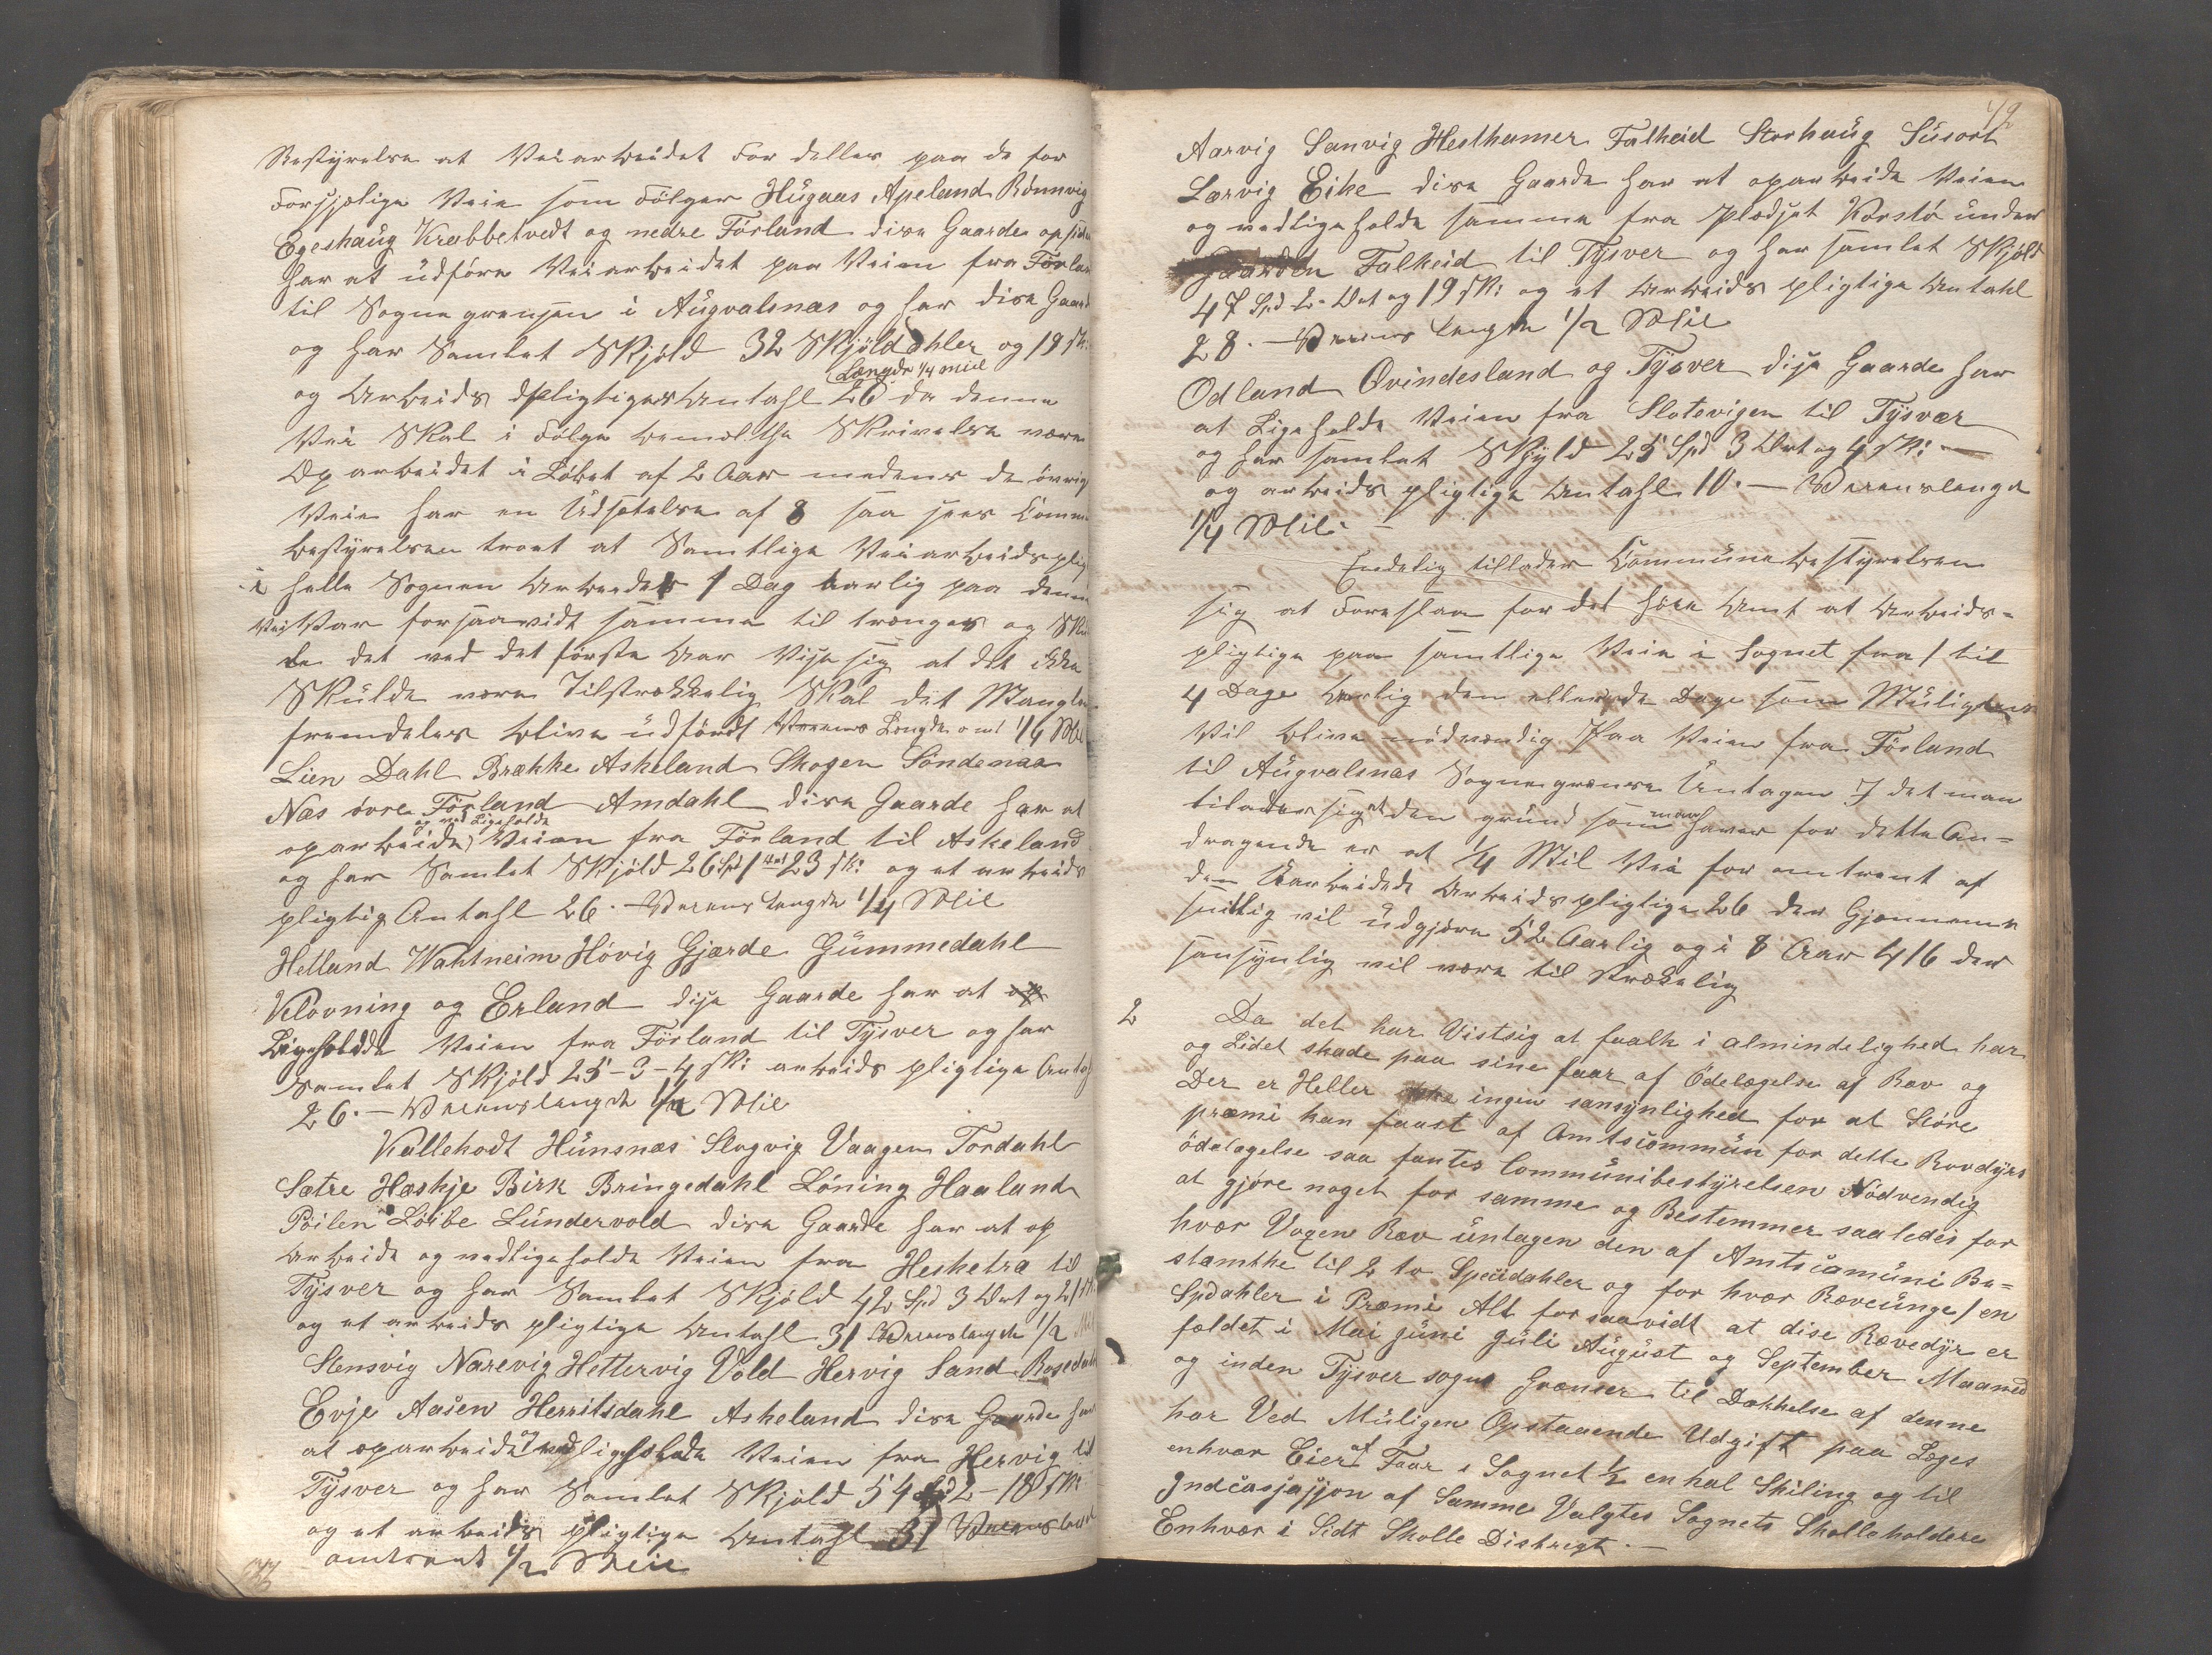 Bestyrelse at Veiarbeidet fordelles paa de for
forskjelige Veie som Fölger Hügaas Apeland Rönnvig
Egeshaug Krabbetvedt og nedre Förland dise Gaarde
har at üdföre Veiarbeidet paa Veien fra Förlan
til Sognegrensen i Aügvalsnæs og har dise Gaard
og har Samlet Skjöld 32 Skjölddahler og 19 sk:
Længde 1/4 Miil
og Arbeids pligtiges Antahl 26 da denne
Vei Skal i Fölge Skrivelse være
Oparbeidet i Löbet af 2 Aar medens de övrige
Veie har en Udsetelse af 8 saa Comm
bestyrelsen troet at Samtlige Veiarbeidsplig
i helle Sognen Arbeider 1 Dag aarlig paa denne
Vei forsaavidt samme til trænges og Skü
de det ved det förste Aar Vise sig at det ikke
Skülde være Tilstrækkelig Skal det Mangle
fremdeles blive üdfördt Veiens Længde omt 1/4 Mil
Lien Dahl Brække Askeland Skogen Söndenaa
Næs övre Förland Amdahl dise Gaarde har at
og vedligeholde
oparbeide Veien fra Förland til Askeland
og har Samlet Skjöld 26 Spd 1 Ort 23 sk: og et arbeids
pligtig Antahl 26. — Veiens længde 1/4 Miil
Hetland Wahtneim Hövig Gjærde Gümmedahl
Klovning og Erland dise Gaarde har at op
Ligeholdde Veien fra Förland til Tysver og har
Samlet Skjöld 25-3-4 sk: arbeids pligtige Antah
26. — Veienslængde 1/2 Miil
Kallekodt Hünsnæs Slogvig Vaagen Tordahl
Sætre Hæskje Birk Bringedahl Löning Haaland
Poilen Loibe Lündervold dise Gaarde har at op
arbeide og vedligeholde Veien fra Hesketra til
Tysver og har Samlet Skjöld 42 Spd 3 Ort og 21 sk.
og et arbeids pligtige Antahl 31 Veienslængde 1/2 Mil
Stensvig Narevig Hettervig Vold Hervig Sand Rosedah
Evje Aasen Herritsdahl Askeland dise Gaarde har
at oparbeide og vedligeholde Veien fra Hervig til
Tysver og har Samlet Skjöld 54 Spd 2 – 18 sk:
og et arbeids pligtige Antahl 31 Veienslæd
omtrent 1/2 Miil
42
Aarvig Sanvig Hesthamer Falheid Storhaüg Süsort
Lærvig Eike dise Gaarde har at oparbeide Veien
og vedligeholde samme fra Plædset Korstö ünder
Gaarden Falkeid til Tysver og har samlet Skjöld
47 Spd 2 Ort og 19 sk: og et Arbeids pligtige Antahl
28. — Veiens længde 1/2 Miil
Odland Qvindesland og Tysver dise Gaarde har
at Ligeholde Veien fra Slotevigen til Tysvær
og har samlet Skyld 25 Spd 3 Ort og 4 sk: —
og arbeids pligtige Antahl 10. — Veienslenge
1/4 Miil. —
Endelig tillader Commünebestyrelsen
sig at Foreslaa for det höie Amt at Arbeids-
pligtige paa samtlige Veie i Sognet fra 1 til
4 Dage Aarlig den eller de Dage som Müligens
vil blive nödvendig Paa Veien fra Förland
til Aügvalsnæs Sognegrænse Üntagen I det man
tilader sig at den gründ som man haver for dette An-
dragende er at 1/4 Mil Vei for omtrent af
den Arbeidspligtige 26 der Gjennem
snitlig vil üdgjöre 52 Aarlig og i 8 Aar 416 der
sansynlig vil være til strækelig
2 Da det har Vistsig at faalk i almindelighed har
og Lidet skade paa sine faar af Ödelægelse af Ræv og
Der er Heller ikke ingen sansynlighed for at Störe
præmi kan faaet af Amtscommün for dette Rovdyrs
ödelægelse saa fantes Commünibestyrelsen Nödvendig
at gjöre noget for samme og Bestemmer saaledes for
hvær Vogen Ræv üntagen den af Amtscomüni Be-
stamthe til 2 to Speciidahler og for hvær Ræveünge 1 en
Spdahler i Præmi Alt forsaavidt at dise Rævedÿr er
fældet i Mai Jüni Jüli Aügüst og September Maaned
og inden Tysver sogns Grænser til Dækhelse af denne
har Ved Müligen Opstaaende Udgift paa Læges
enhver Eier af Faar i Sognet 1/2 en hal Skiling og til
Indcasjasjon af Samme Valgtes Sognets Skolleholdere
Enhver i Sidt Skolle Distrigt. —